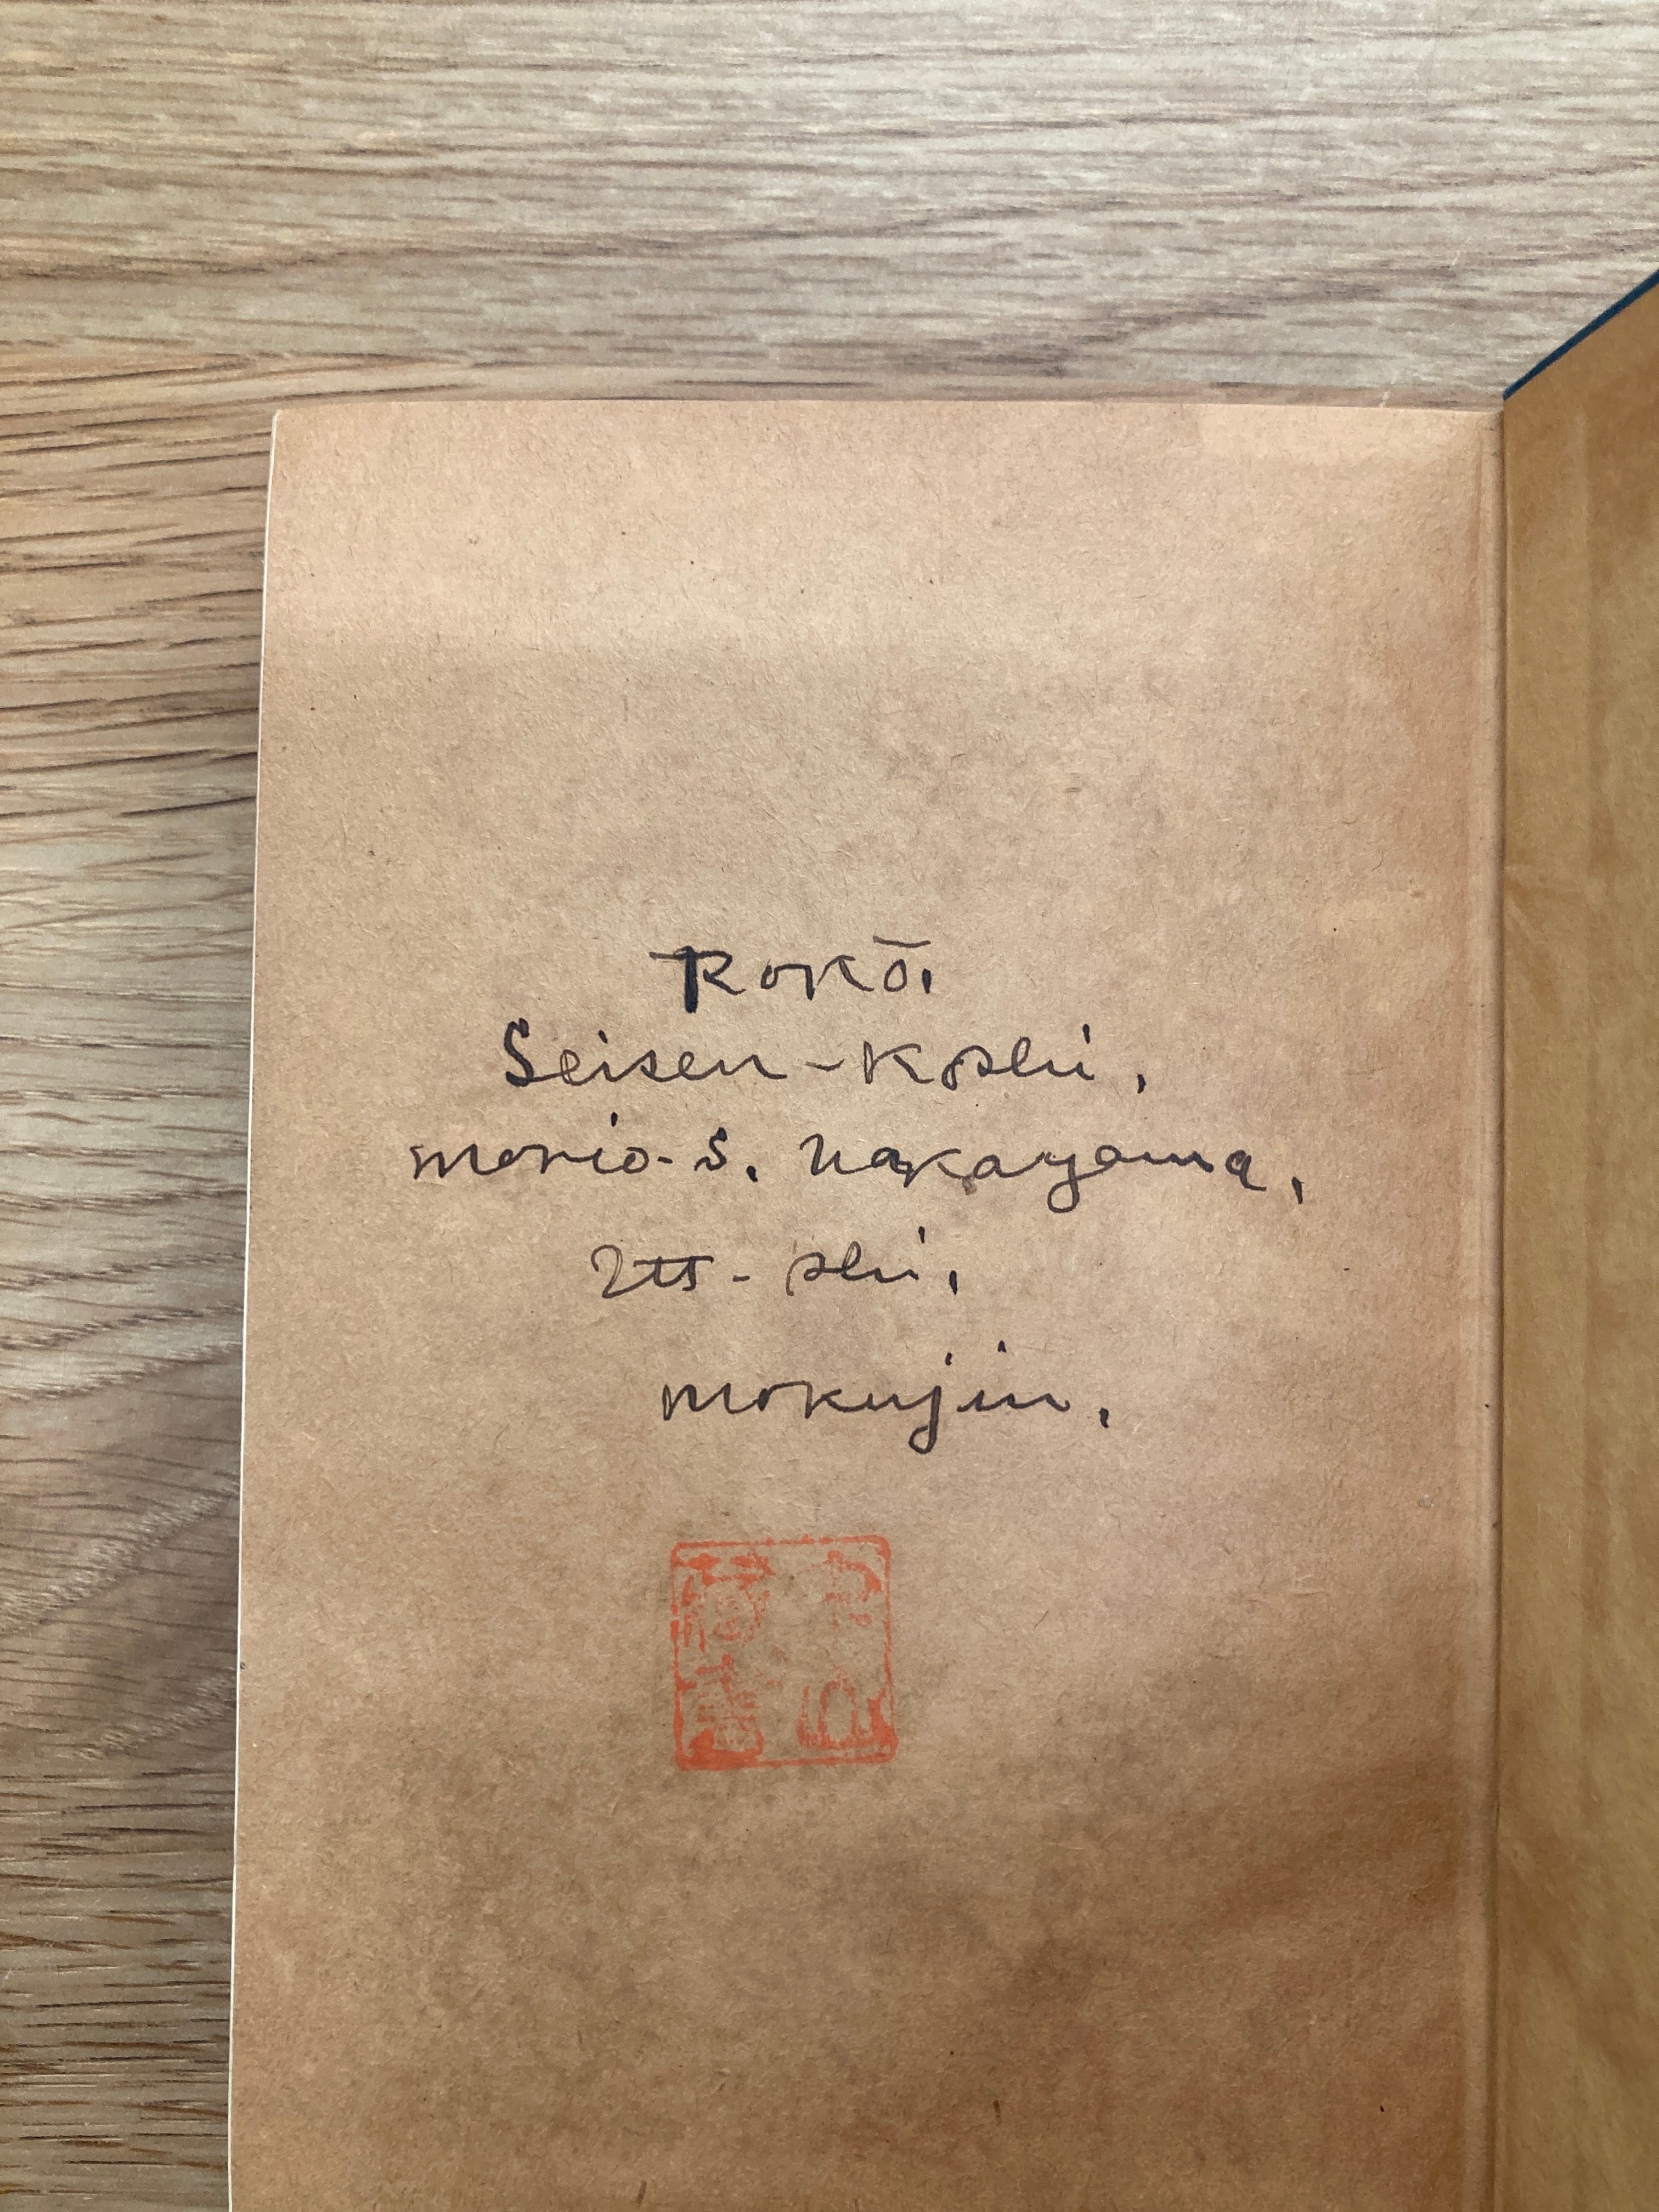 Rokō.
Seisen-Koshi,
morio-S. nakayama,
shi,
mokujin,